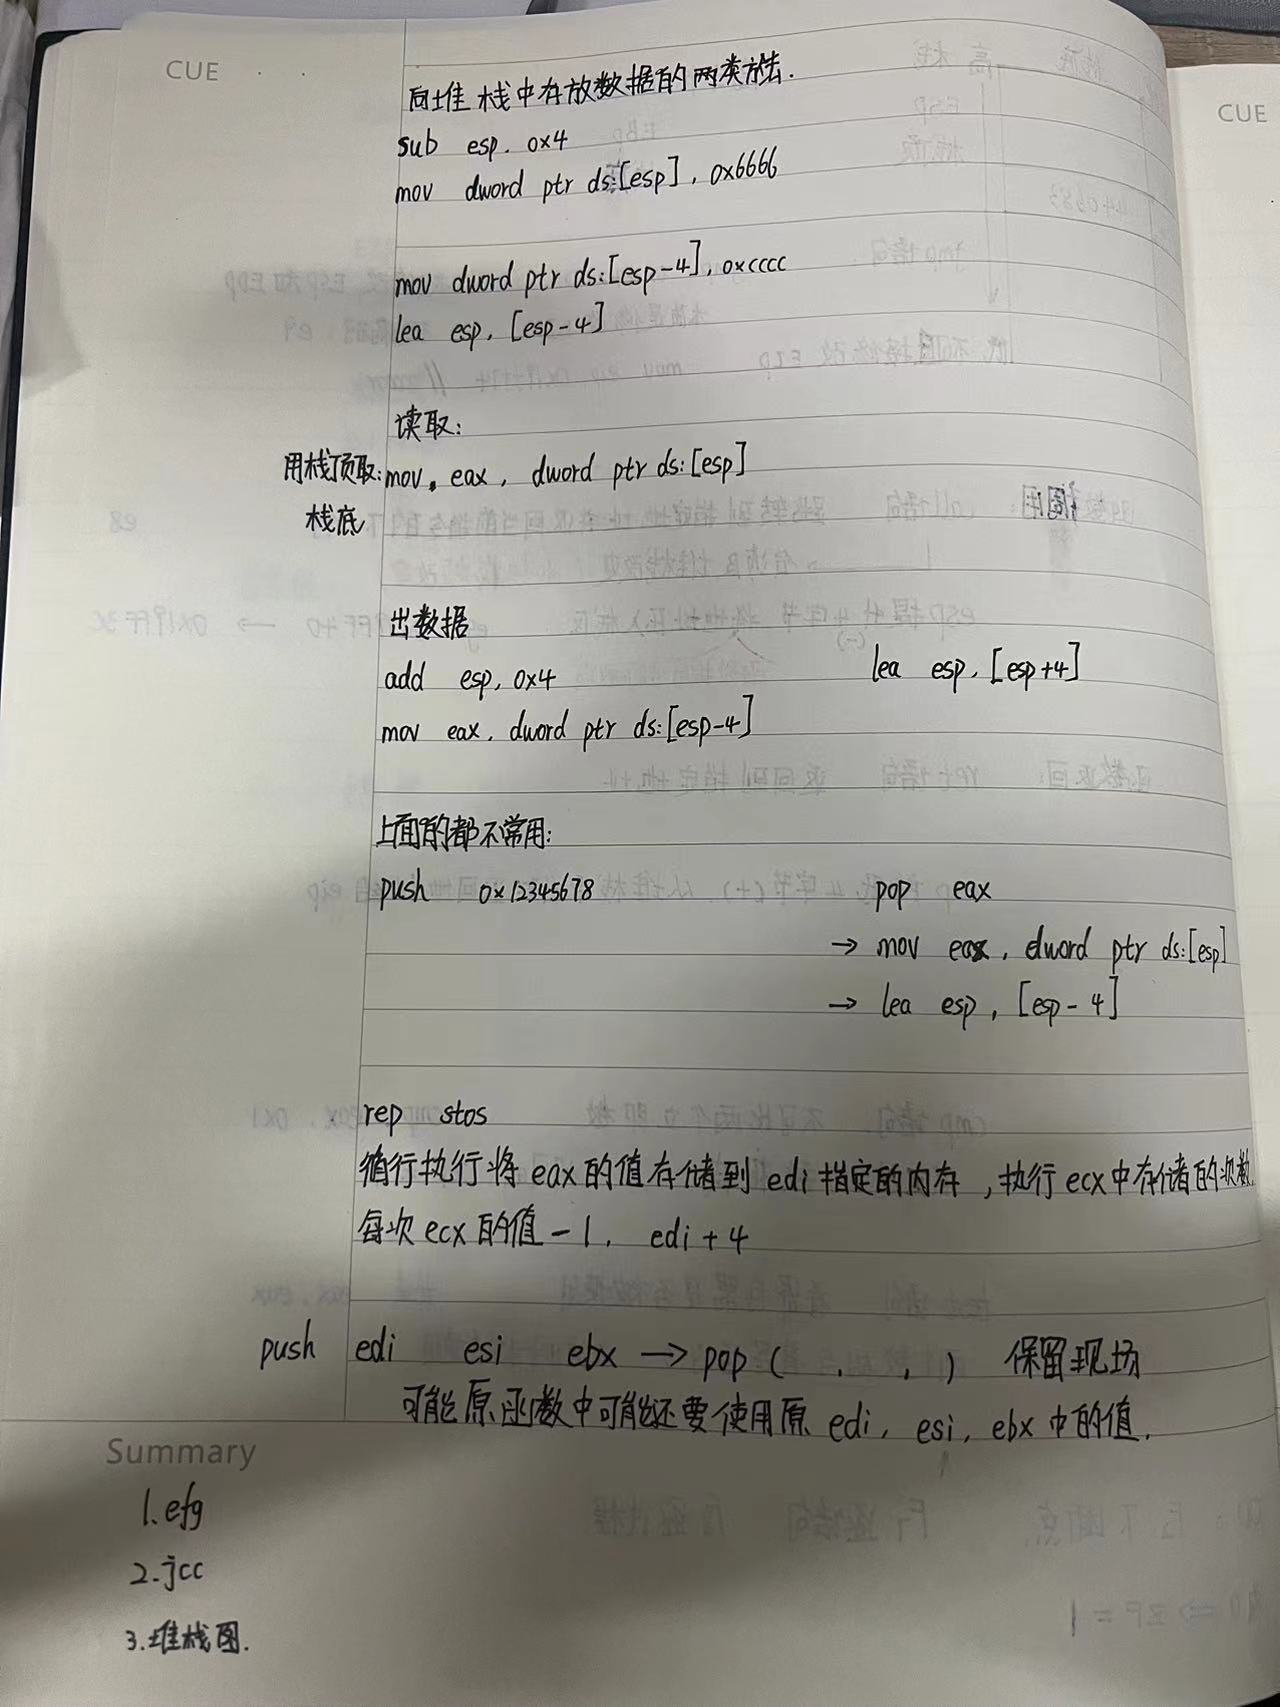 CUE
CUE
向堆栈中存放数据的两类方法.
sub esp. 0x4
mov dword ptr ds:[esp], 0x6666
mov dword ptr ds:[esp-4], 0xcccc
lea esp, [esp-4]
读取:
用栈顶取: mov. eax, dword ptr ds:[esp]
栈底
出数据
add esp, 0x4 lea esp, [esp+4]
mov eax, dword ptr ds:[esp-4]
上面的都不常用:
push 0x12345678 pop eax
→ mov eax, dword ptr ds:[esp]
→ lea esp, [esp-4]
rep stos
循行执行将eax的值存储到 edi 指定的内存,执行ecx中存储的次数.
每次ecx的值-1, edi+4
push edi esi ebx → pop ( , , ) 保留现场
可能原函数中可能还要使用原 edi, esi, ebx 中的值.
Summary
1.efg
2.jcc
3.堆栈图.